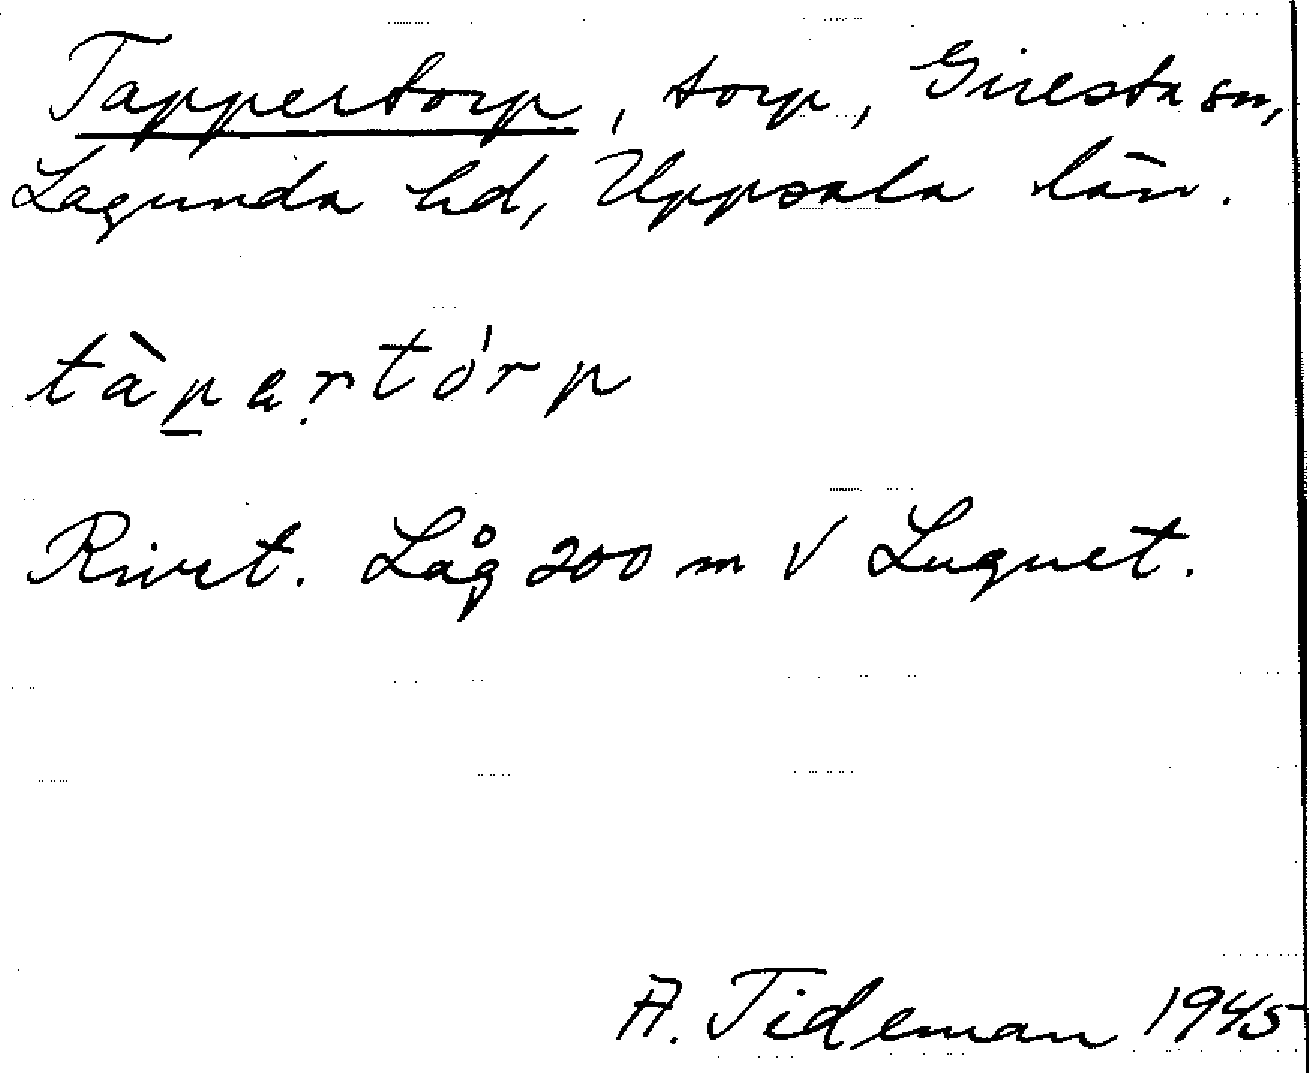 Tappertorp, torp, Giresta sn,
Lagunda hd, Uppsala län.
tàpạrtór̀p
Rivet. Låg 200 m V Lugnet.
A. Tideman 1945